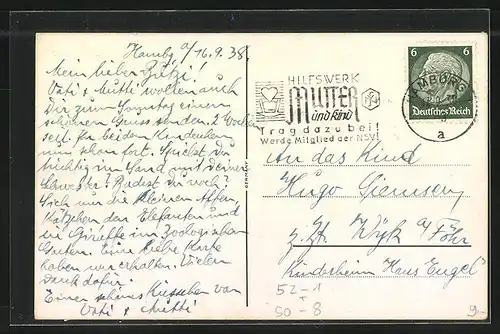 Hambg. a/ 16.9.38
Mein lieber Butzi!
Vati & Mutti wollen auch
Dir zum Sonntag einen
schönen Gruss senden. 2 Wochen
seid Ihr beiden Kinderchen
nun schon fort. Spielst Du
tüchtig im Sand mit Deiner
Schwester? Badest Du noch?
Sieh nur die kleinen Affen,
Kätzchen den Elefanten und
die Giraffe im Zoologischen
Garten. Eine liebe Karte
haben wir erhalten. Vielen
Dank dafür.
Einen schönes Küsschen von
Vati & Mutti
GERMANY
HILFSWERK
MUTTER
und Kind
Trag dazu bei!
Werde Mitglied der NSV!
HAMBURG
a
6 6
Deutsches Reich
An das Kind
Hugo Siemsen
z. Zt. Wyk a/ Föhr
Kinderheim Haus Engel
52-1
+
50-8
9.-